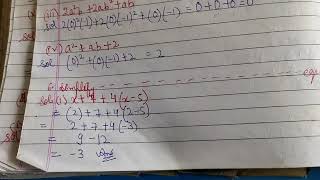 (iii) 2a²b + 2ab² + ab
sol 2(0)²(-1) + 2(0)(-1)² + (0)(-1) = 0+0+0=0
(iv) a² + ab + 2
sol (0)² + (0)(-1) + 2 = 2
6. Simplify
sol (i) x + 7 + 4(x-5)
= (2) + 7 + 4(2-5)
= 2 + 7 + 4(-3)
= 9 - 12
= -3